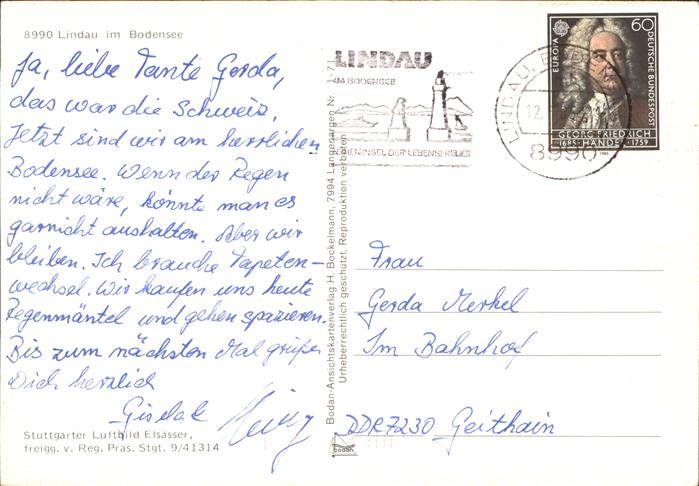 8990 Lindau im Bodensee
Ja, liebe Tante Gerda,
das war die Schweiz.
Jetzt sind wir am herrlichen
Bodensee. Wenn der Regen
nicht wäre, könnte man es
garnicht aushalten. Aber wir
bleiben. Ich brauche Tapeten-
wechsel. Wir kaufen uns heute
Regenmäntel und gehen spazieren.
Bis zum nächsten Mal grüßen
Dich herzlich
Gisela &
Heinz
Stuttgarter Luftbild Elsässer,
freigg. v. Reg. Präs. Stgt. 9/41314
Bodan-Ansichtskartenverlag H. Bockelmann, 7994 Langenargen Nr. 1-71
Urheberrechtlich geschützt, Reproduktion verboten
bodan
LINDAU
IM BODENSEE
LINDAU, B
12.
8990
EUROPA
60
DEUTSCHE BUNDESPOST
GEORG FRIEDRICH
1685 HÄNDEL 1759
Frau
Gerda Merkel
Im Bahnhof
DDR 7230 Geithain